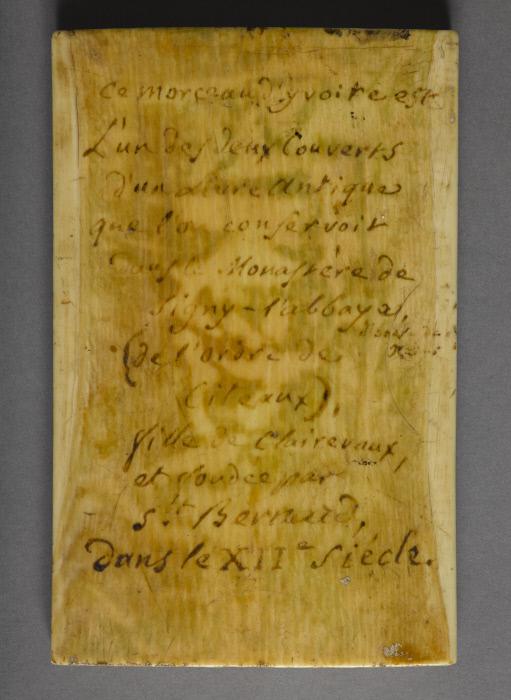 Ce morceau d'yvoire est
L'un des deux Couverts
d'un Livre Antique
que l'on conservoit
dans le Monastère de
Signy-l'abbaye,
(de l'ordre de
Citeaux),
fille de Clairevaux,
et fondée par
St. Bernard,
dans le XIIe Siécle.